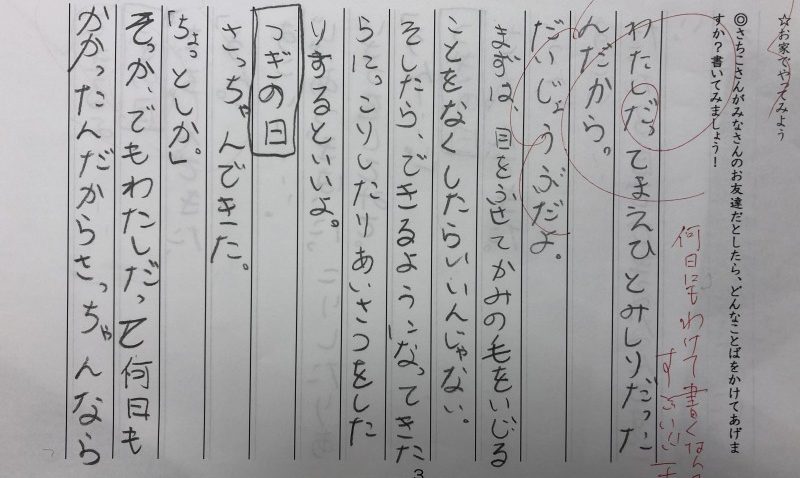 ☆お家でやってみよう
◎さちこさんがみなさんのお友達だとしたら、どんなことばをかけてあげま
すか？書いてみましょう！
何日にもわけて書くなん
すごい！
わたしだってまえひとみしりだった
んだから。
だいじょうぶだよ。
まずは、目をふせてかみの毛をいじる
ことをなくしたらいいんじゃない。
そしたら、できるようになってきた
らにっこりしたりあいさつをした
りするといいよ。
つぎの日
さっちゃんできた。
「ちょっとしか。」
そっか、でもわたしだって何日も
かかったんだからさっちゃんなら
3